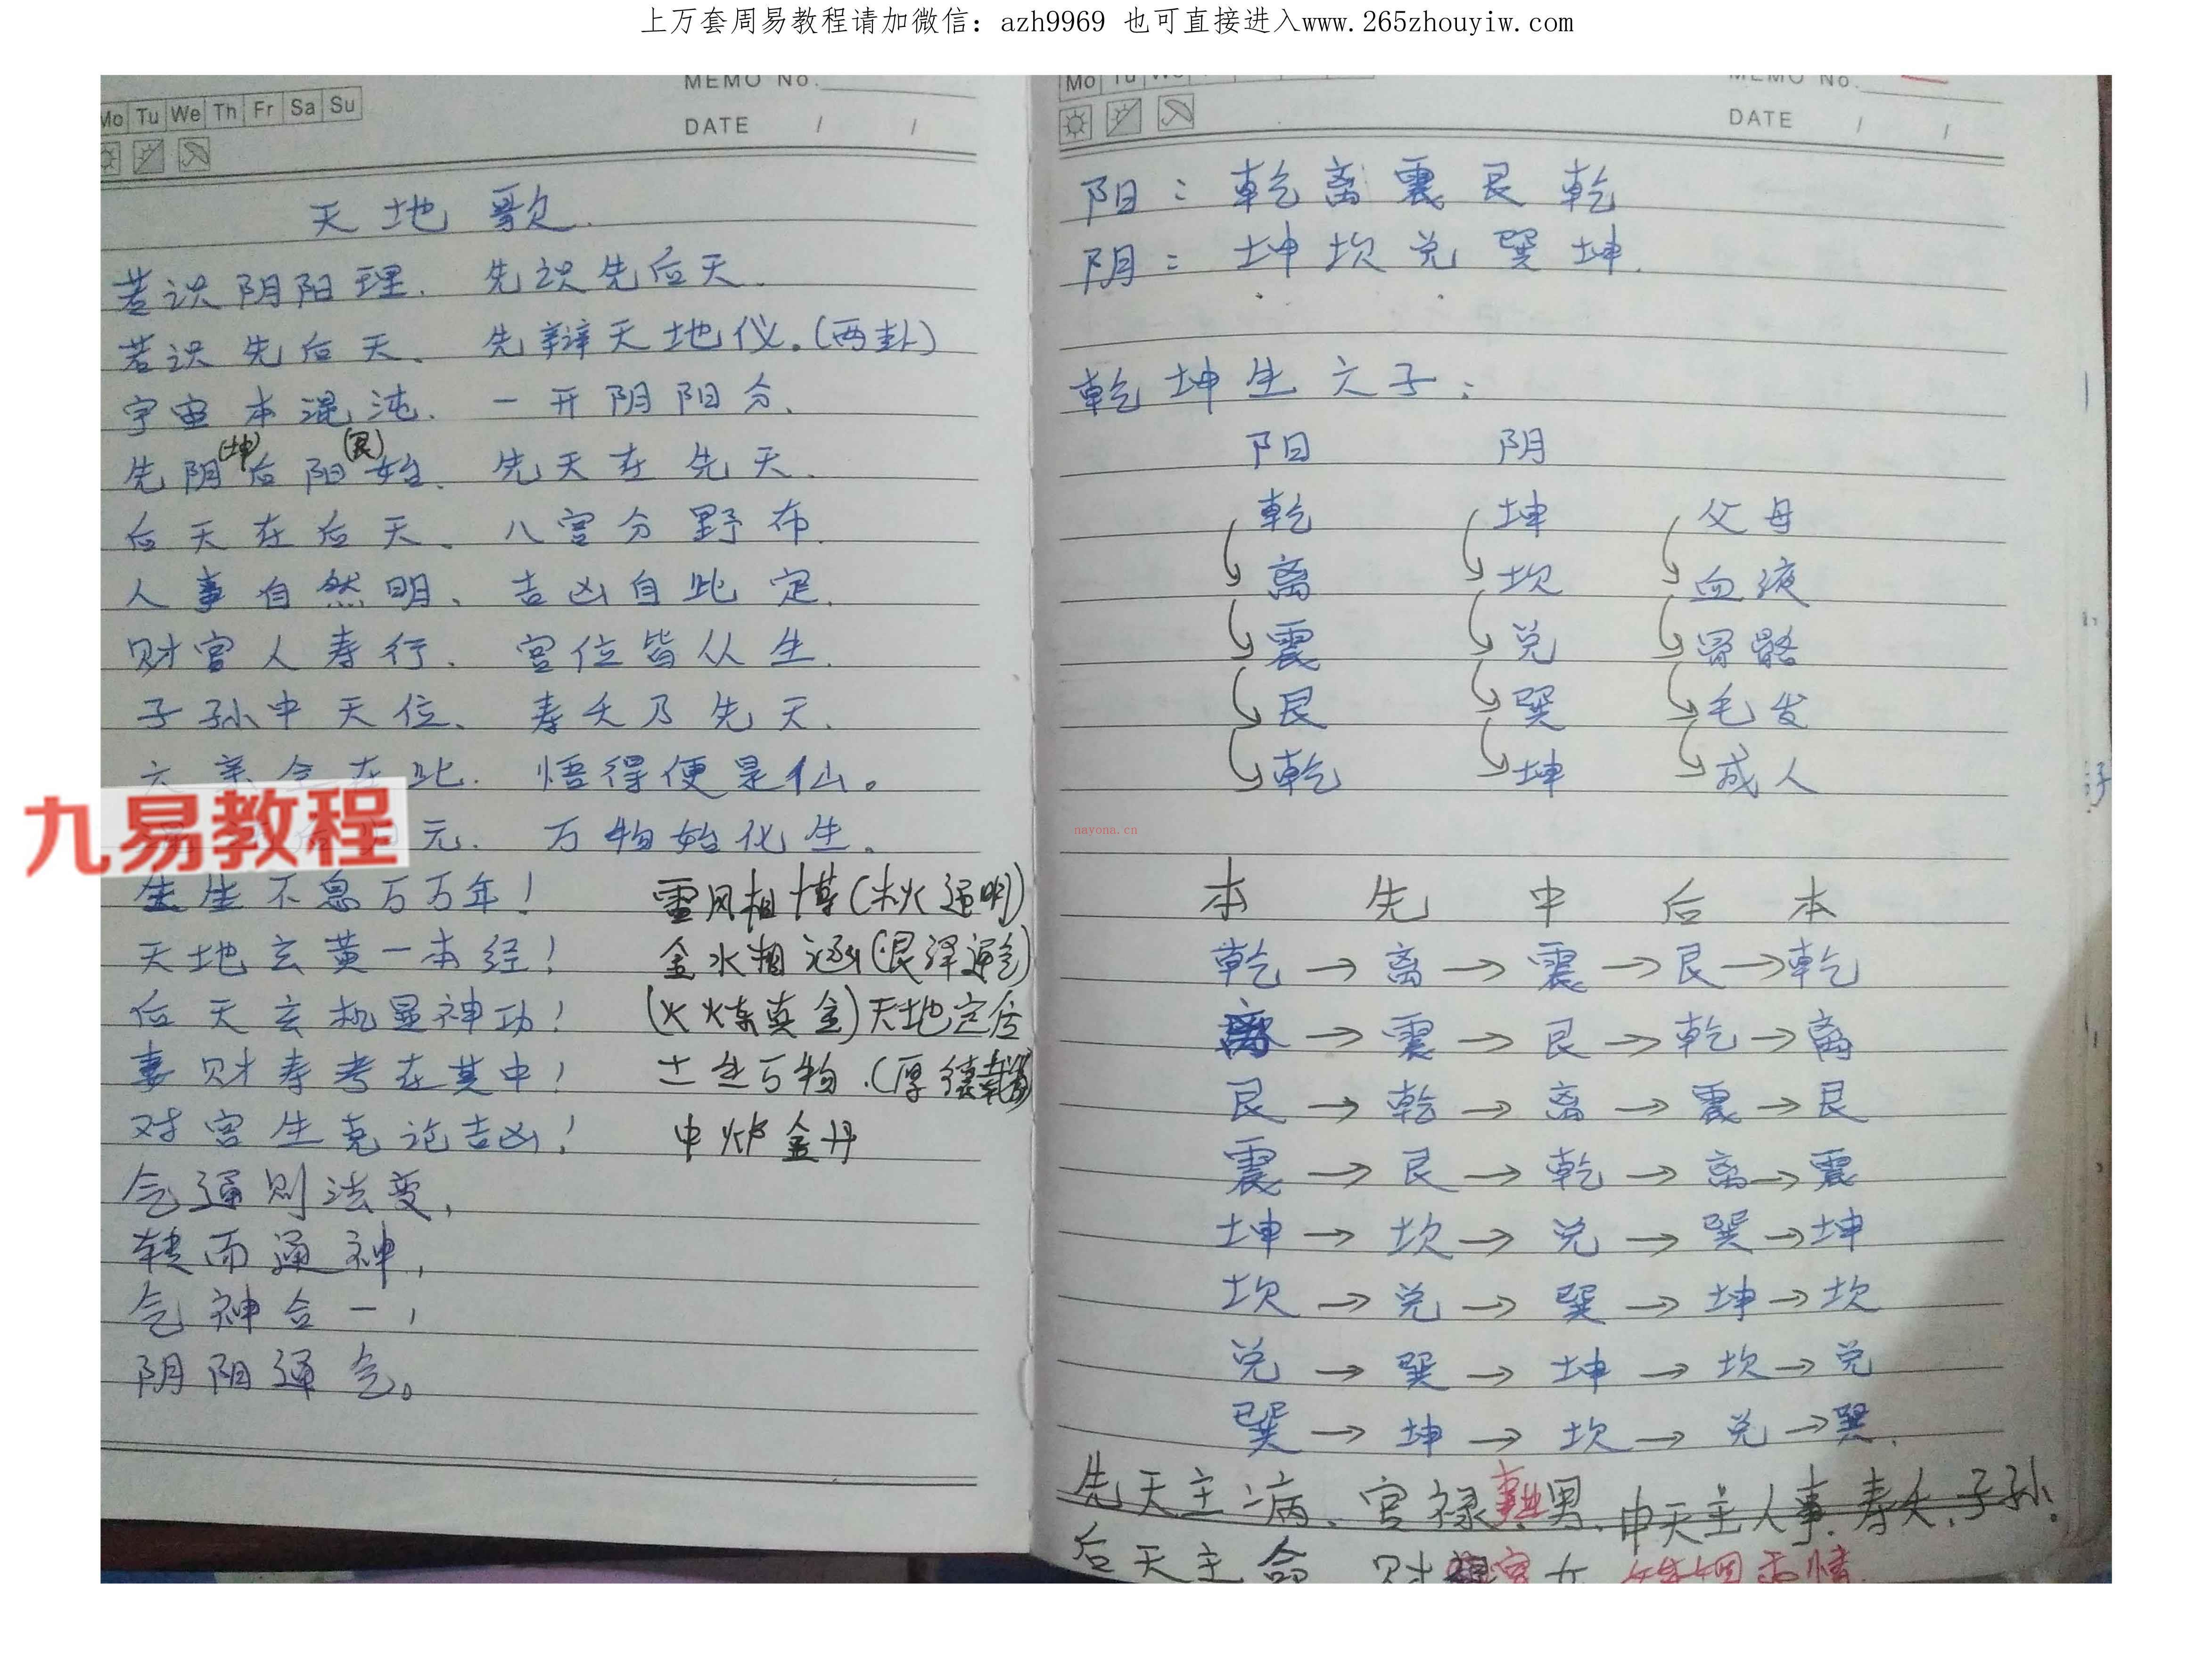 上万套周易教程请加微信：azh9969 也可直接进入www.265zhouyiw.com
MEMO No.
Mo Tu We Th Fr Sa Su
DATE / /
天地歌.
若识阴阳理. 先识先后天.
若识先后天、先辩天地仪。(两卦)
宇宙本混沌. 一开阴阳分、
(坤) (艮)
先阴后阳始、先天在先天.
后天在后天、八宫分野布.
人事自然明、吉凶自此定.
财官人寿行、宫位皆从生.
子孙中天位、寿夭乃先天.
六亲全在此. 悟得便是仙。
元. 万物始化生。
九易教程
生生不息万万年！ 雷风相博(木火通明)
天地玄黄一本经！ 金水相涵(艮泽通气)
后天玄机显神功！ (火炼真金)天地定位
妻财寿考在其中！ 土生万物.(厚德载物)
对宫生克论吉凶！ 中炉金丹
气通则法变,
转而通神,
气神合一,
阴阳通气。
Mo Tu We
MEMO No.
DATE / /
阳：乾离震艮乾
阴：坤坎兑巽坤.
乾坤生六子：
阳 阴
乾 坤 父母
离 坎 血液
震 兑 骨骼
艮 巽 毛发
乾 坤 成人
nayona.cn
本 先 中 后 本
乾→离→震→艮→乾
离→震→艮→乾→离
艮→乾→离→震→艮
震→艮→乾→离→震
坤→坎→兑→巽→坤
坎→兑→巽→坤→坎
兑→巽→坤→坎→兑
巽→坤→坎→兑→巽.
先天主病、官禄男.中天主人事.寿夭.子孙.
后天主命 财 女 婚姻 情.